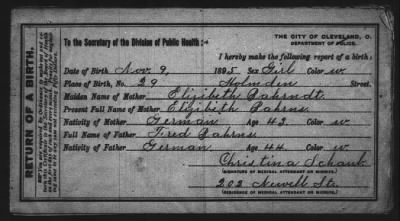 THE CITY OF CLEVELAND, O.
DEPARTMENT OF POLICE.
To the Secretary of the Division of Public Health:
I hereby make the following report of a birth:
Date of Birth Nov. 9, 1895 Sex Girl Color w
Place of Birth, No. 29 Holmden Street.
Maiden Name of Mother Elizibeth Bahrndt
Present Full Name of Mother Elizibeth Bahrns
Nativity of Mother German Age 43 Color w
Full Name of Father Fred Bahrns
Nativity of Father German Age 44 Color w
Christina Schank
(SIGNATURE OF MEDICAL ATTENDANT OR MIDWIFE.)
202 Newell Str
(RESIDENCE OF MEDICAL ATTENDANT OR MIDWIFE.)
RETURN OF A BIRTH.